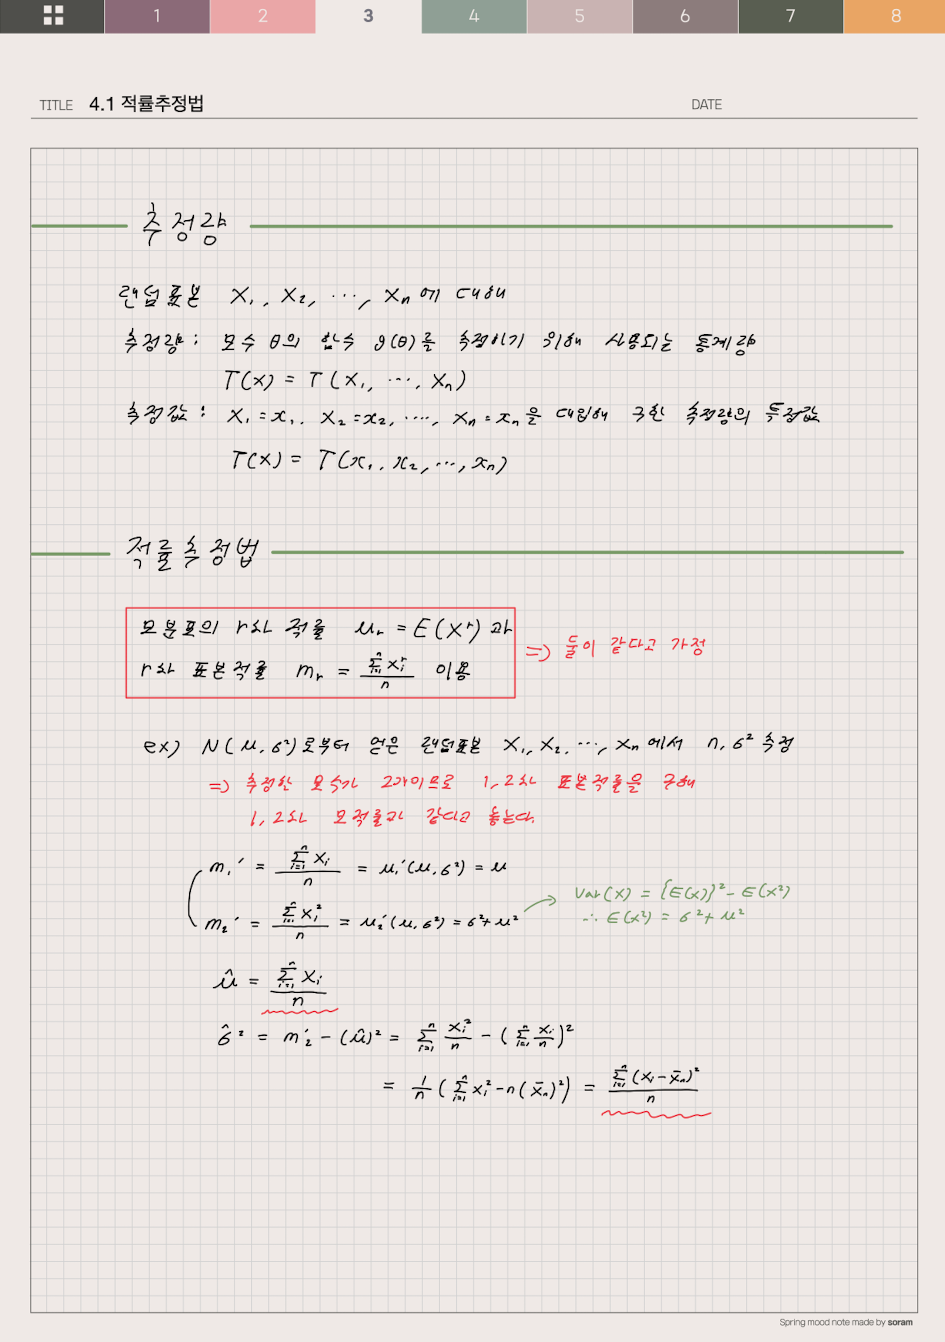 1 2 3 4 5 6 7 8
TITLE 4.1 적률추정법 DATE
추정량
랜덤표본 X₁, X₂, ⋯, Xₙ에 대해
추정량: 모수 θ의 함수 g(θ)를 추정하기 위해 사용되는 통계량
T(X) = T(X₁, ⋯, Xₙ)
추정값: X₁=x₁, X₂=x₂, ⋯, Xₙ=xₙ을 대입해 구한 추정량의 특정값
T(x) = T(x₁, x₂, ⋯, xₙ)
적률추정법
모분포의 r차 적률 μᵣ = E(Xʳ)과
r차 표본적률 mᵣ = Σⁿᵢ₌₁ Xᵢʳ / n 이용
⇒ 둘이 같다고 가정
ex) N(μ, σ²)로부터 얻은 랜덤표본 X₁, X₂, ⋯, Xₙ에서 n, σ² 추정
⇒ 추정한 모수가 2개이므로 1, 2차 표본적률을 구해
1, 2차 모적률과 같다고 놓는다.
m₁′ = Σⁿᵢ₌₁ Xᵢ / n = μ₁′(μ, σ²) = μ
m₂′ = Σⁿᵢ₌₁ Xᵢ² / n = μ₂′(μ, σ²) = σ²+μ²
Var(X) = {E(X)}² − E(X²)
∴ E(X²) = σ²+μ²
μ̂ = Σⁿᵢ₌₁ Xᵢ / n
σ̂² = m₂′ − (μ̂)² = Σⁿᵢ₌₁ Xᵢ²/n − (Σⁿᵢ₌₁ Xᵢ/n)²
= 1/n (Σⁿᵢ₌₁ Xᵢ² − n(X̄ₙ)²) = Σⁿᵢ₌₁ (Xᵢ − X̄ₙ)² / n
Spring mood note made by soram